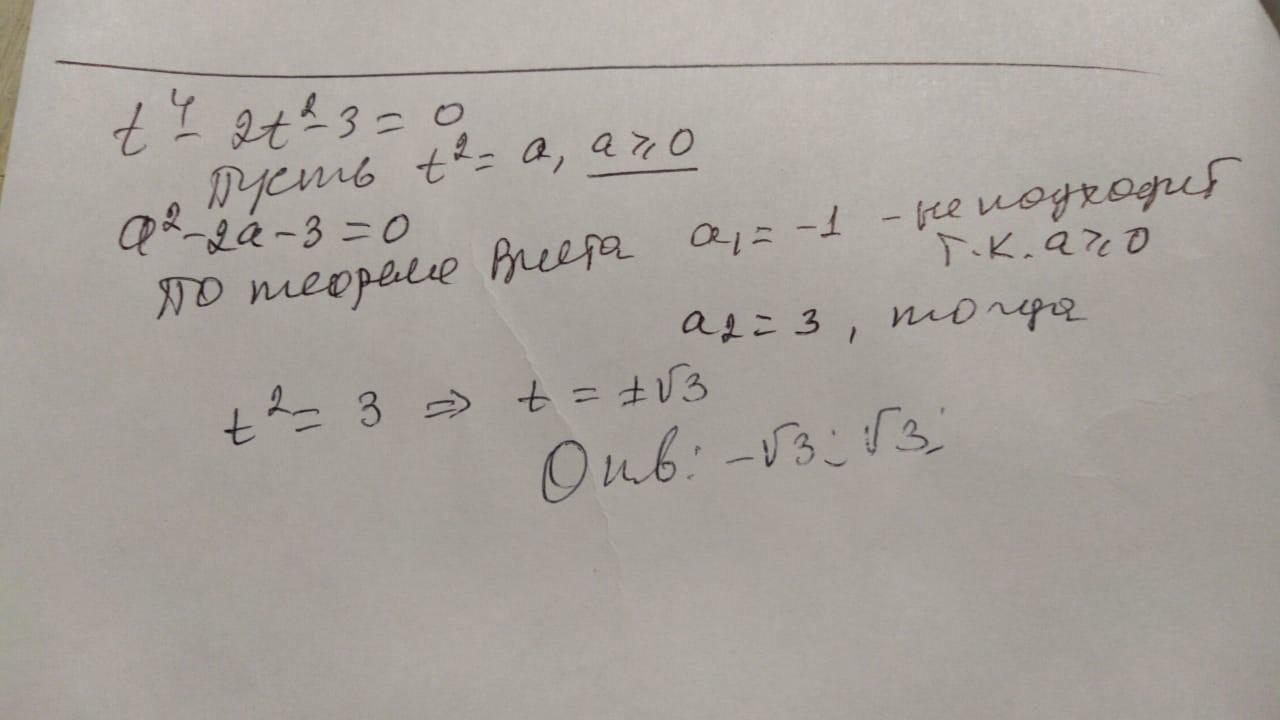 t⁴ - 2t² - 3 = 0
Пусть t² = a, a ≥ 0
a² - 2a - 3 = 0
По теореме Виета a₁ = -1 - не подходит
т.к. a ≥ 0
a₂ = 3, тогда
t² = 3 ⇒ t = ±√3
Отв: -√3; √3;